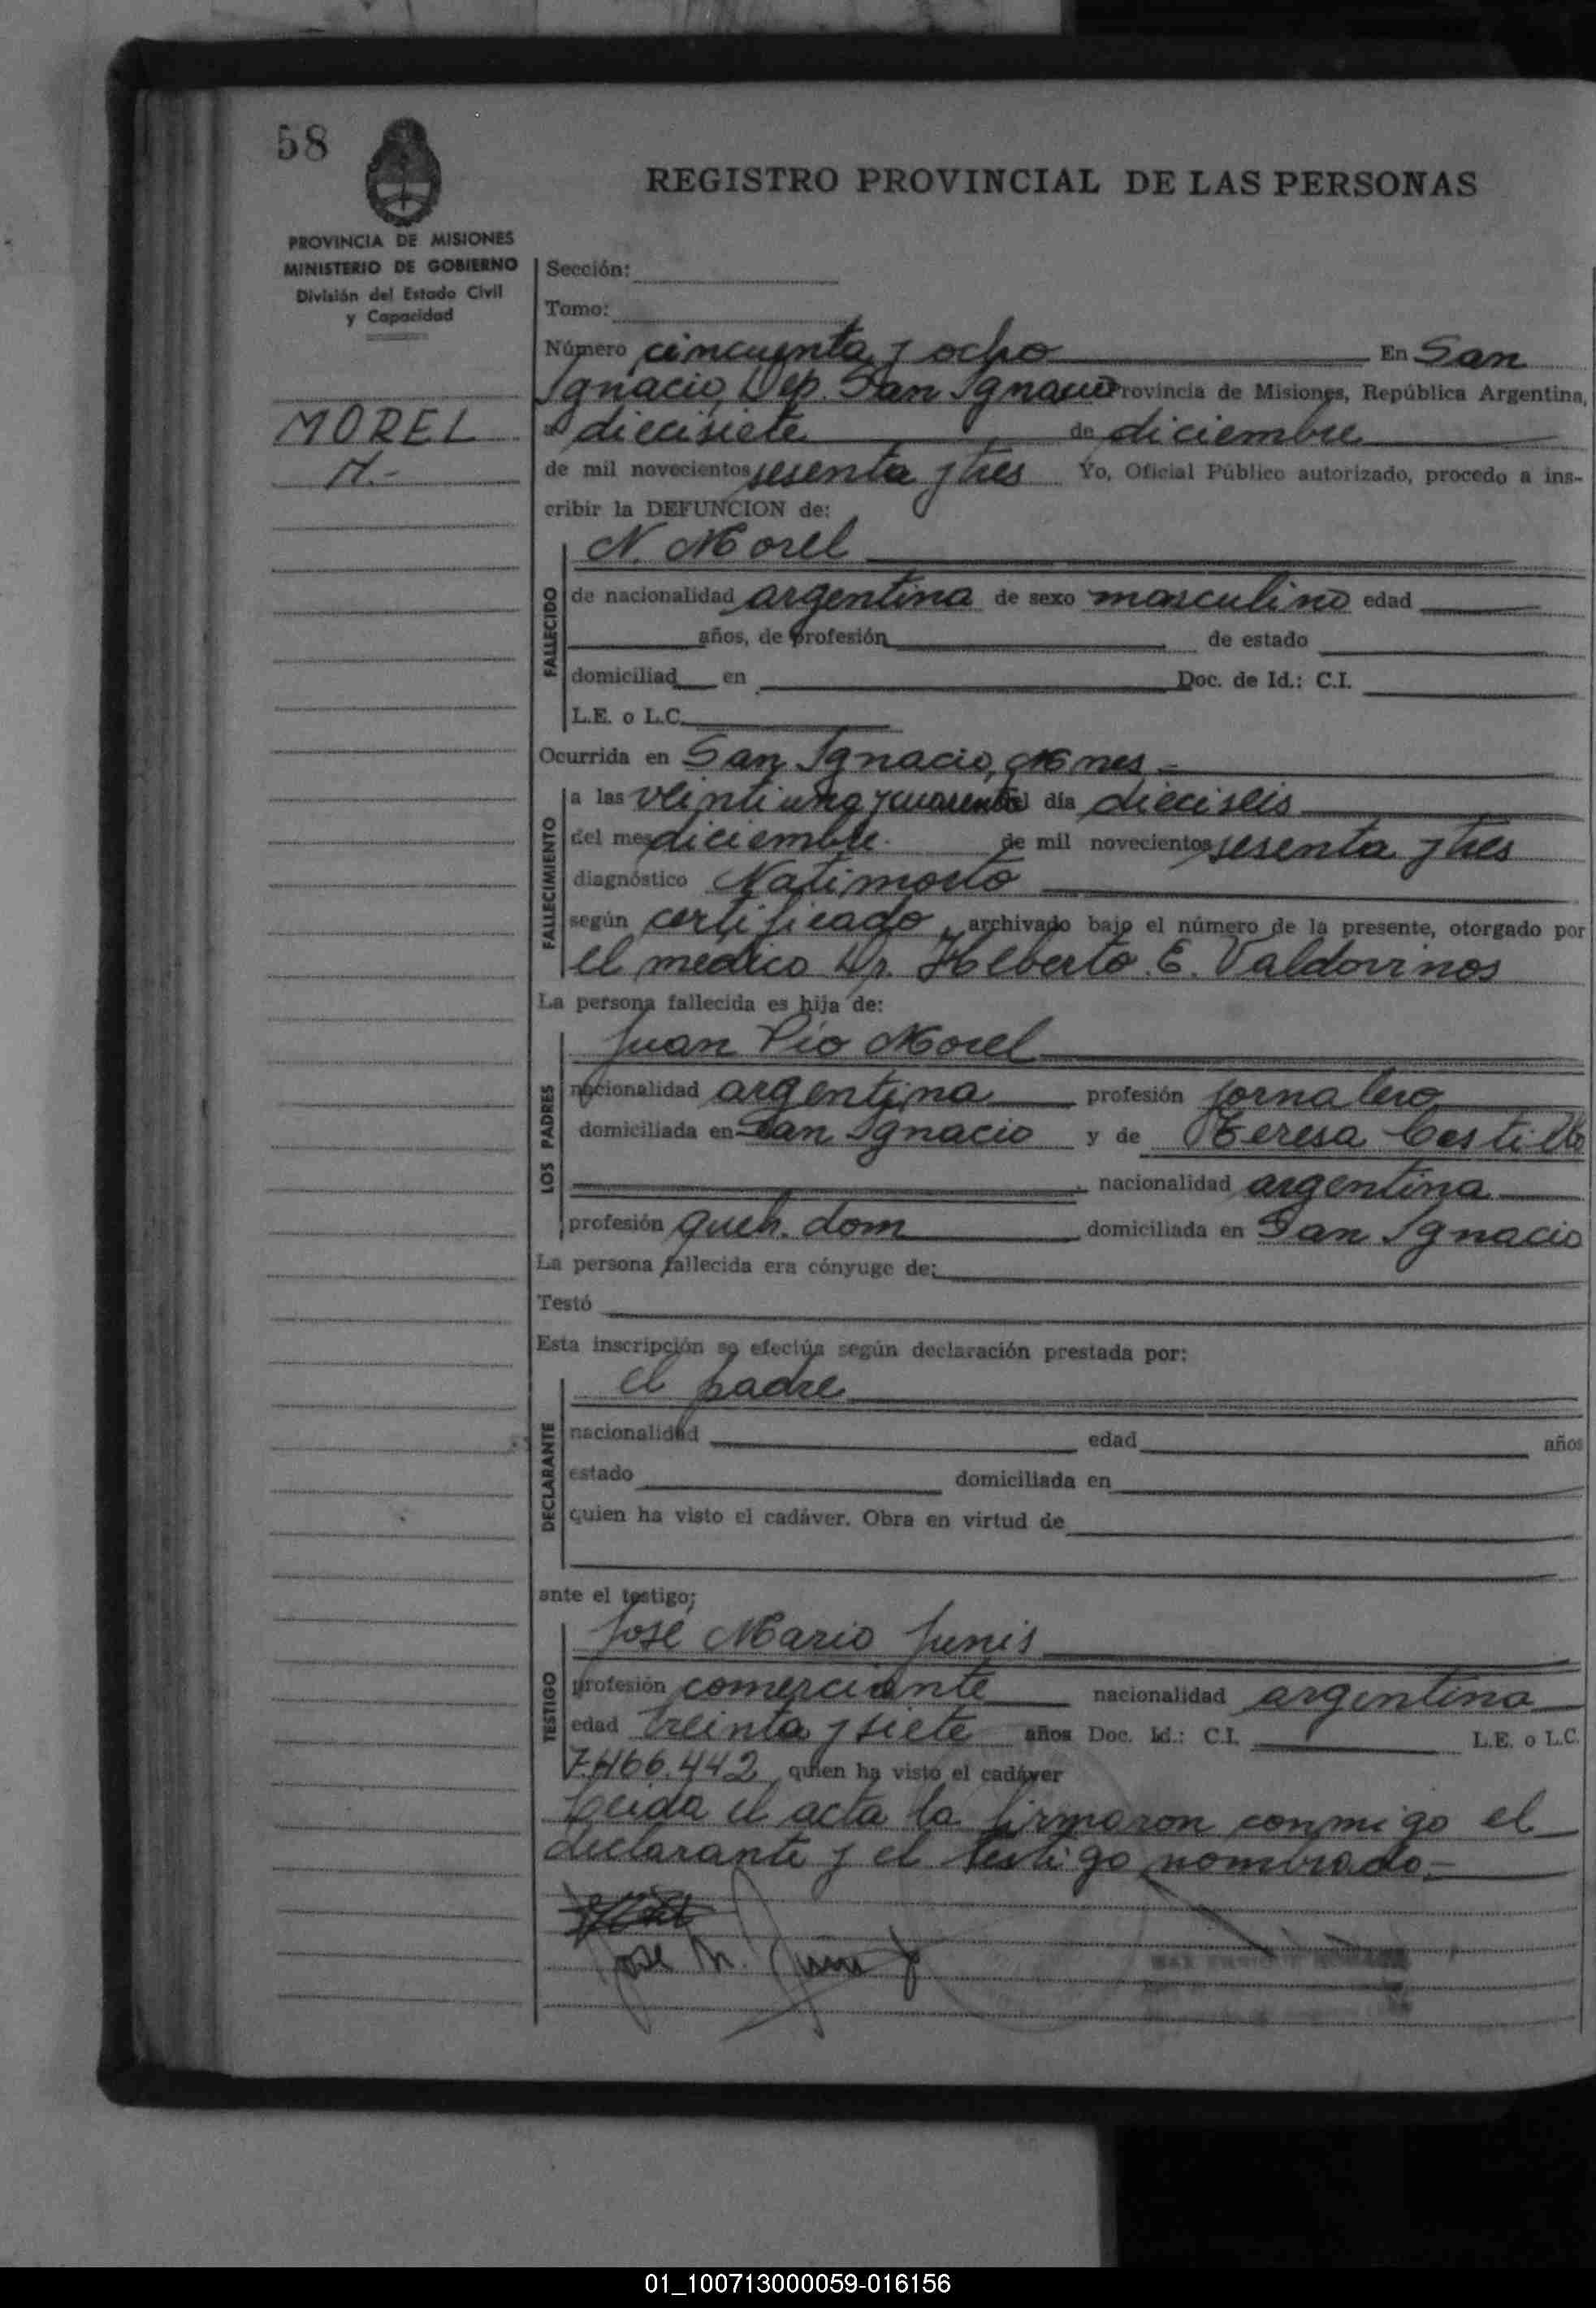 58
REGISTRO PROVINCIAL DE LAS PERSONAS
PROVINCIA DE MISIONES
MINISTERIO DE GOBIERNO
División del Estado Civil
y Capacidad
MOREL
N.-
Sección:
Tomo:
Número cincuenta y ocho En San
Ignacio, Dep. San Ignacio Provincia de Misiones, República Argentina,
a diecisiete de diciembre
de mil novecientos sesenta y tres Yo, Oficial Público autorizado, procedo a ins-
cribir la DEFUNCION de:
FALLECIDO
N. Morel
de nacionalidad argentina de sexo masculino edad
años, de profesión de estado
domiciliad en Doc. de Id.: C.I.
L.E. o L.C.
Ocurrida en San Ignacio, Mnes -
FALLECIMIENTO
a las veintiuna y cuarenta el día dieciseis
del mes diciembre. de mil novecientos sesenta y tres
diagnóstico Natimorto
según certificado, archivado bajo el número de la presente, otorgado por
el medico Dr. Helberto E. Valdovinos
La persona fallecida es hija de:
LOS PADRES
Juan Pío Morel
nacionalidad argentina profesión jornalero
domiciliada en San Ignacio y de Teresa Castillo
nacionalidad argentina
profesión queh. dom domiciliada en San Ignacio
La persona fallecida era cónyuge de:
Testó
Esta inscripción se efectúa según declaración prestada por:
DECLARANTE
el padre
nacionalidad edad años
estado domiciliada en
quien ha visto el cadáver. Obra en virtud de
ante el testigo:
TESTIGO
José Mario Junis
profesión comerciante nacionalidad argentina
edad treinta y siete años Doc. Id.: C.I. L.E. o L.C.
7.466.442 quien ha visto el cadáver
Leida el acta la firmaron conmigo el
declarante y el testigo nombrado.-
José M.
01_100713000059-016156